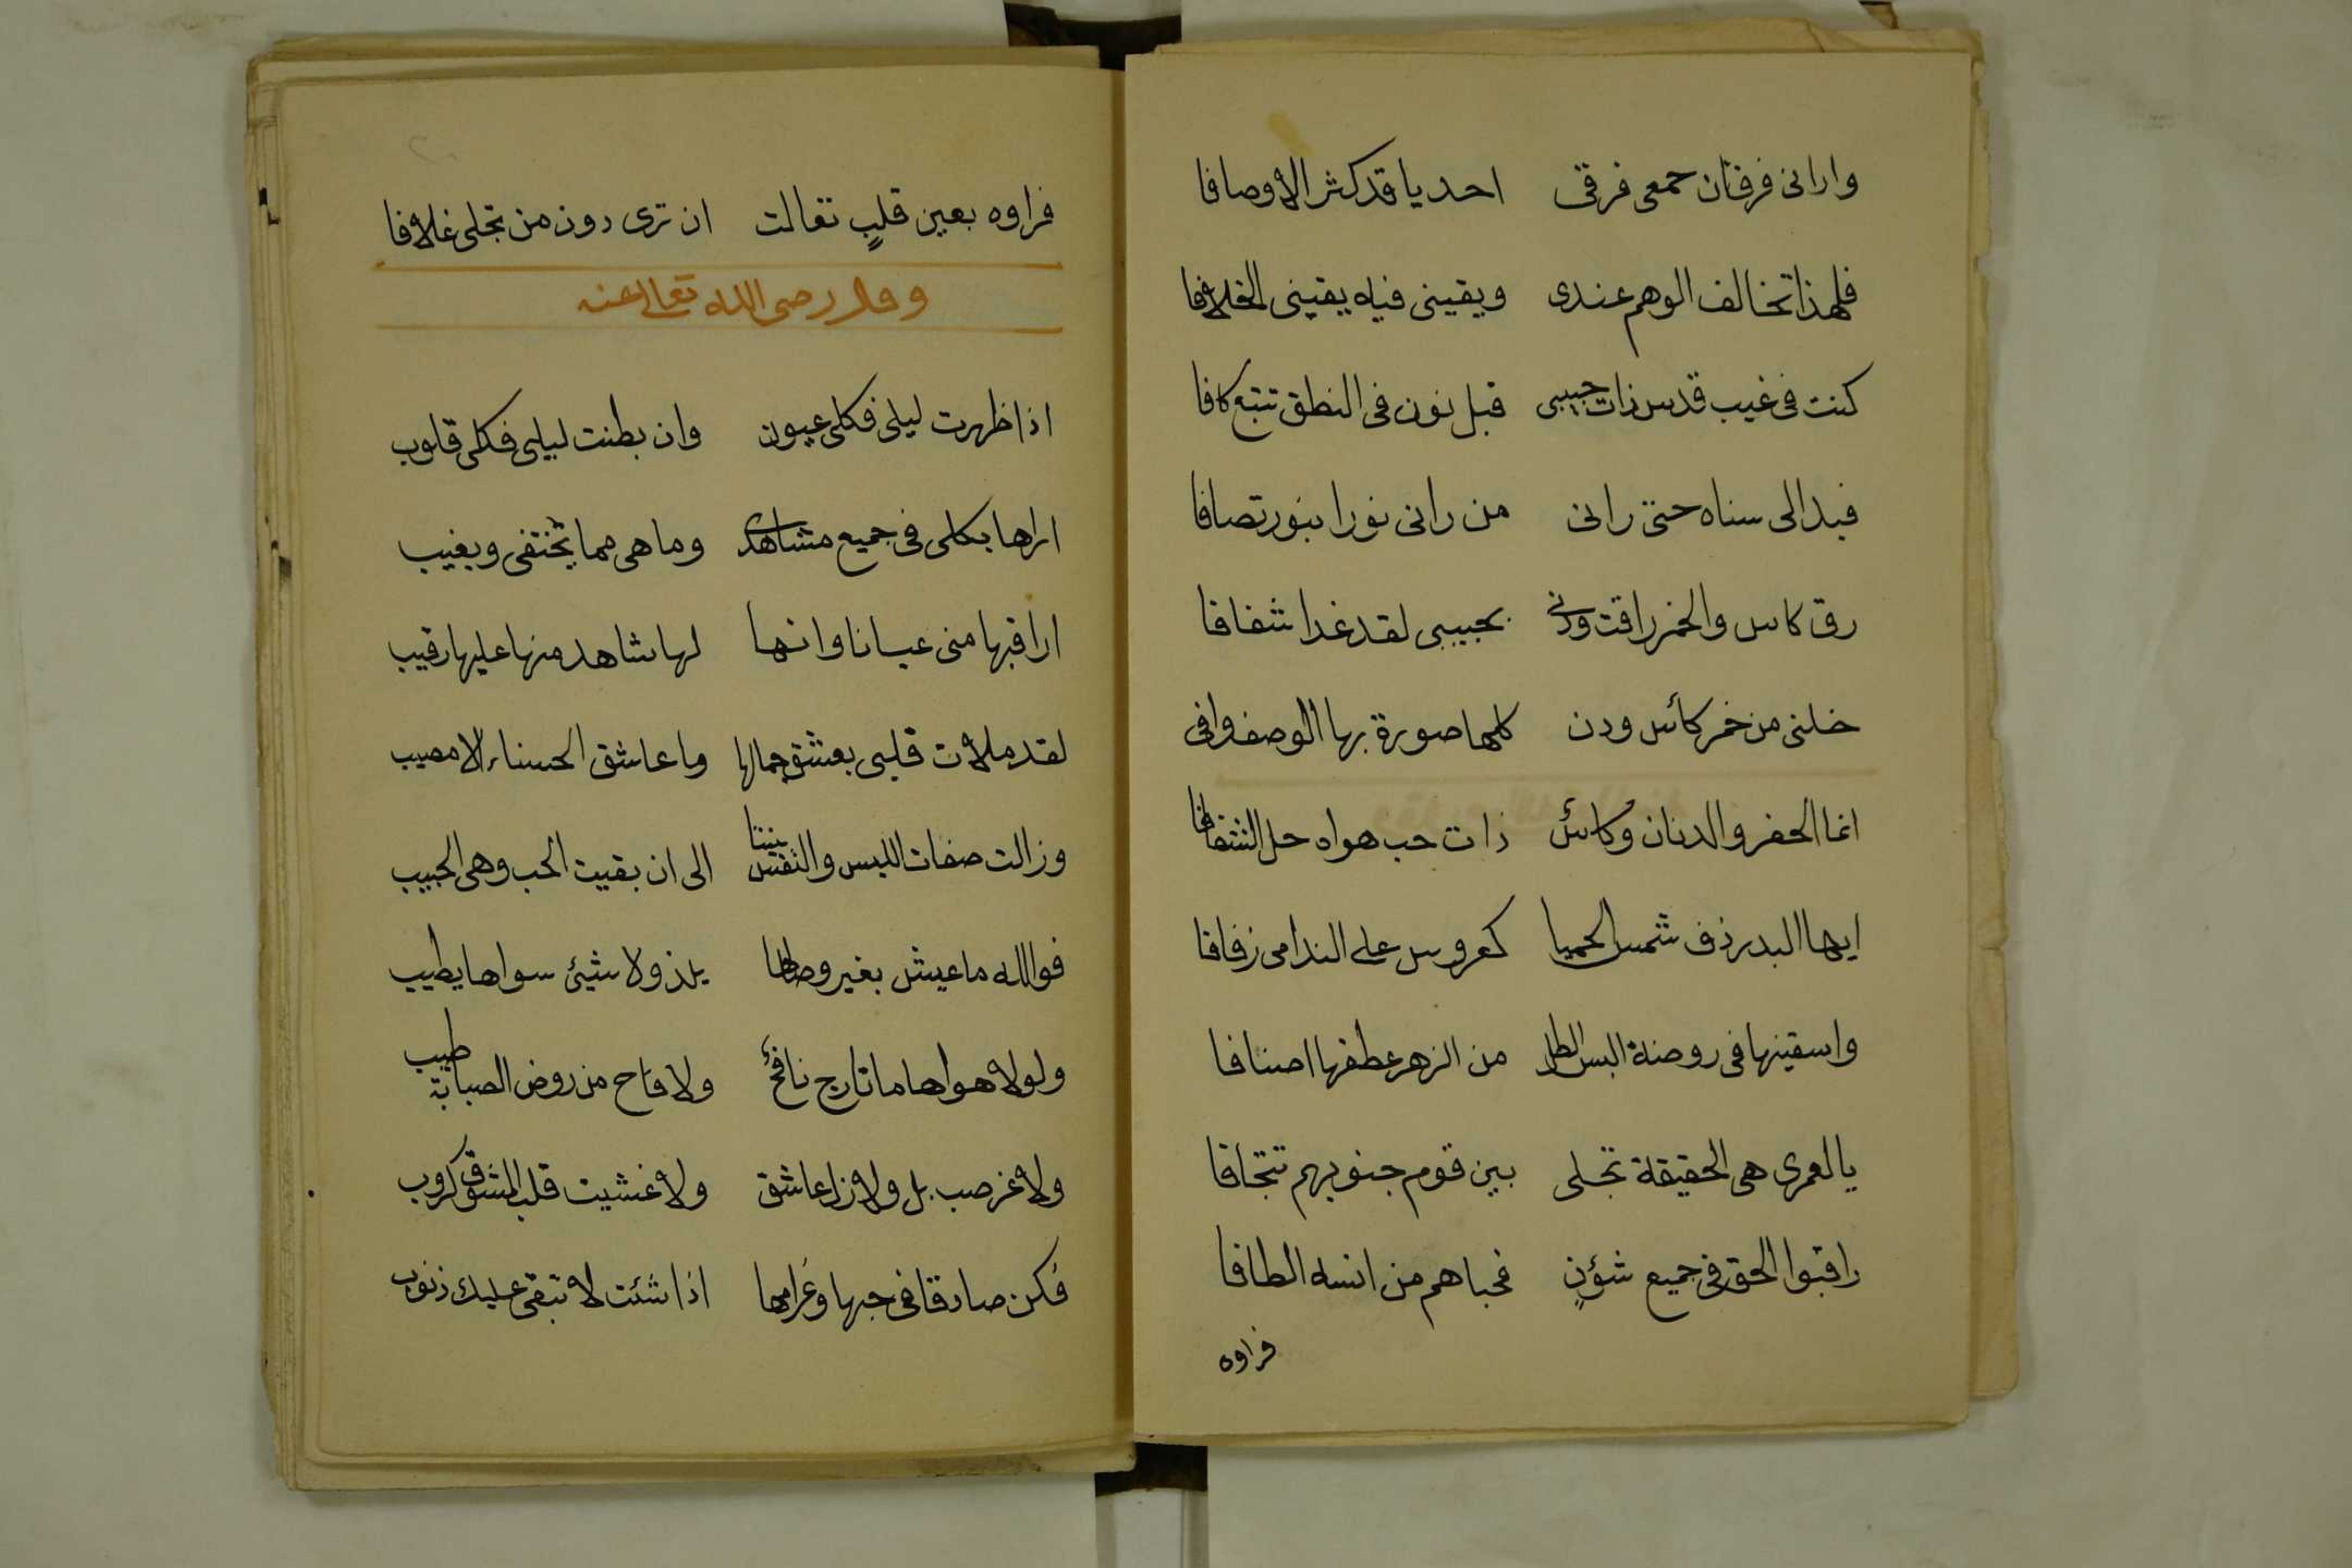 وارانى فرقتان جمعى فرقى احديا قد كثر الاوصافا
فلهذا تخالف الوهم عندى ويقينى فيه يقينى الخلافا
كنت فى غيب قدس ذات حبيبى قبل نون فى النطق تتبع كافا
فبدا لى سناه حتى رانى من رانى نورا بنور تصافا
رق كاس والخمر راقت ودنى بحبيبى لقد غدا شفافا
خلنى من خمر كائس ودن كلها صورة بها الوصف وافى
انما الخمر والدنان وكائس ذات حب هواه حل الشغافا
ايها البدر زف شمس الحميا كعروس على الندامى زفافا
واسقينها فى روضة البس الطل من الزهر عطفها اصنافا
يا لعمرى هى الحقيقة تجلى بين قوم جنوبهم تتجافا
راقبوا الحق فى جميع شؤنٍ فحباهم من انسه الطافا
فراوه
فراوه بعين قلبٍ تعالت ان ترى دون من تجلى غلافا
وقال رضى الله تعالى عنه
اذا ظهرت ليلى فكلى عيون وان بطنت ليلى فكلى قلوب
اراها بكلى فى جميع مشاهدى وما هى مما يختفى ويغيب
اراقبها منى عيانا وانها لها شاهد منها عليها رقيب
لقد ملات قلبى بعشق جمالها وما عاشق الحسناء الا مصيب
وزالت صفات اللبس والنفس بيننا الى ان بقيت الحب وهى الحبيب
فوالله ما عيش بغير وصالها يلذ ولا شيئ سواها يطيب
ولولا هواها ما تارج نافح ولا فاح من روض الصبابة طيب
ولا غر صب بل ولا زل عاشق ولا غشيت قلب المشوق كروب
فكن صادقا فى حبها وغرامها اذا شئت لا تبقى عليك ذنوب